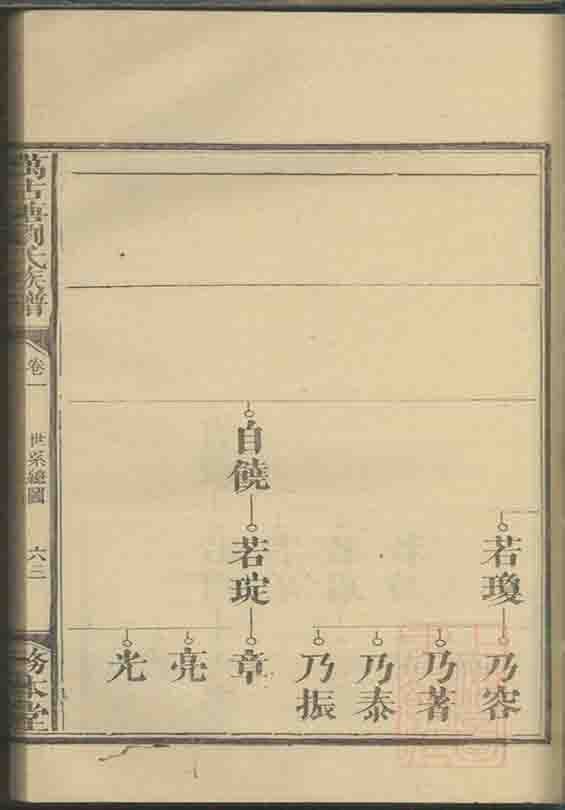 若瓊
乃容
乃著
乃泰
乃振
自饒
若琔
章
亮
光
劉氏族譜
卷一
世系總圖
務本堂